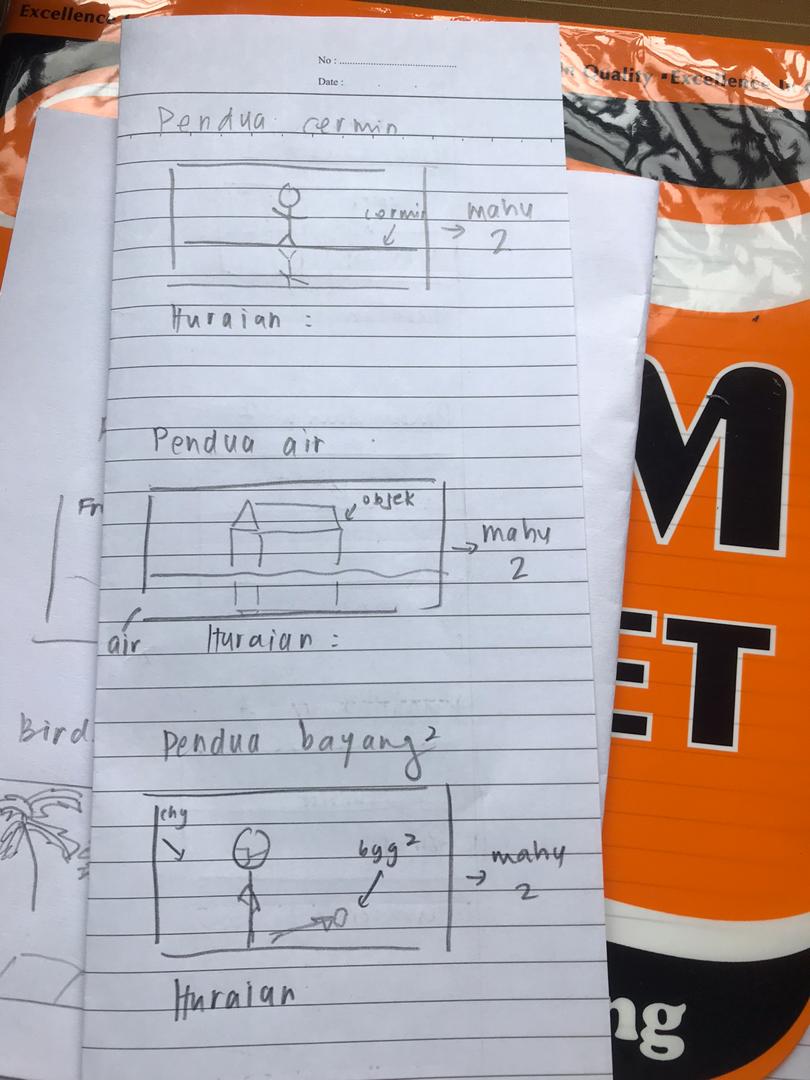 Excellence
in Quality • Excellence in
No :
Date :
Pendua cermin
cermin
→ mahu
2
Huraian :
Pendua air
objek
→ mahu
2
air
Huraian :
Pendua bayang²
chy
byg²
→ mahu
2
Huraian
Bird
M
ET
ng